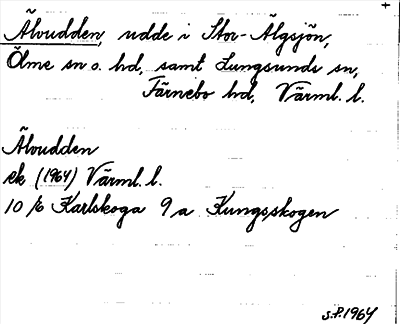 +
Älvudden, udde i Stor-Älgsjön,
Ölme sn o. hd, samt Lungsunds sn,
Färnebo hd, Värml. l.
Älvudden
ek (1964) Värml. l.
10 / 6 Karlskoga 9 a Kungsskogen
S.P. 1964